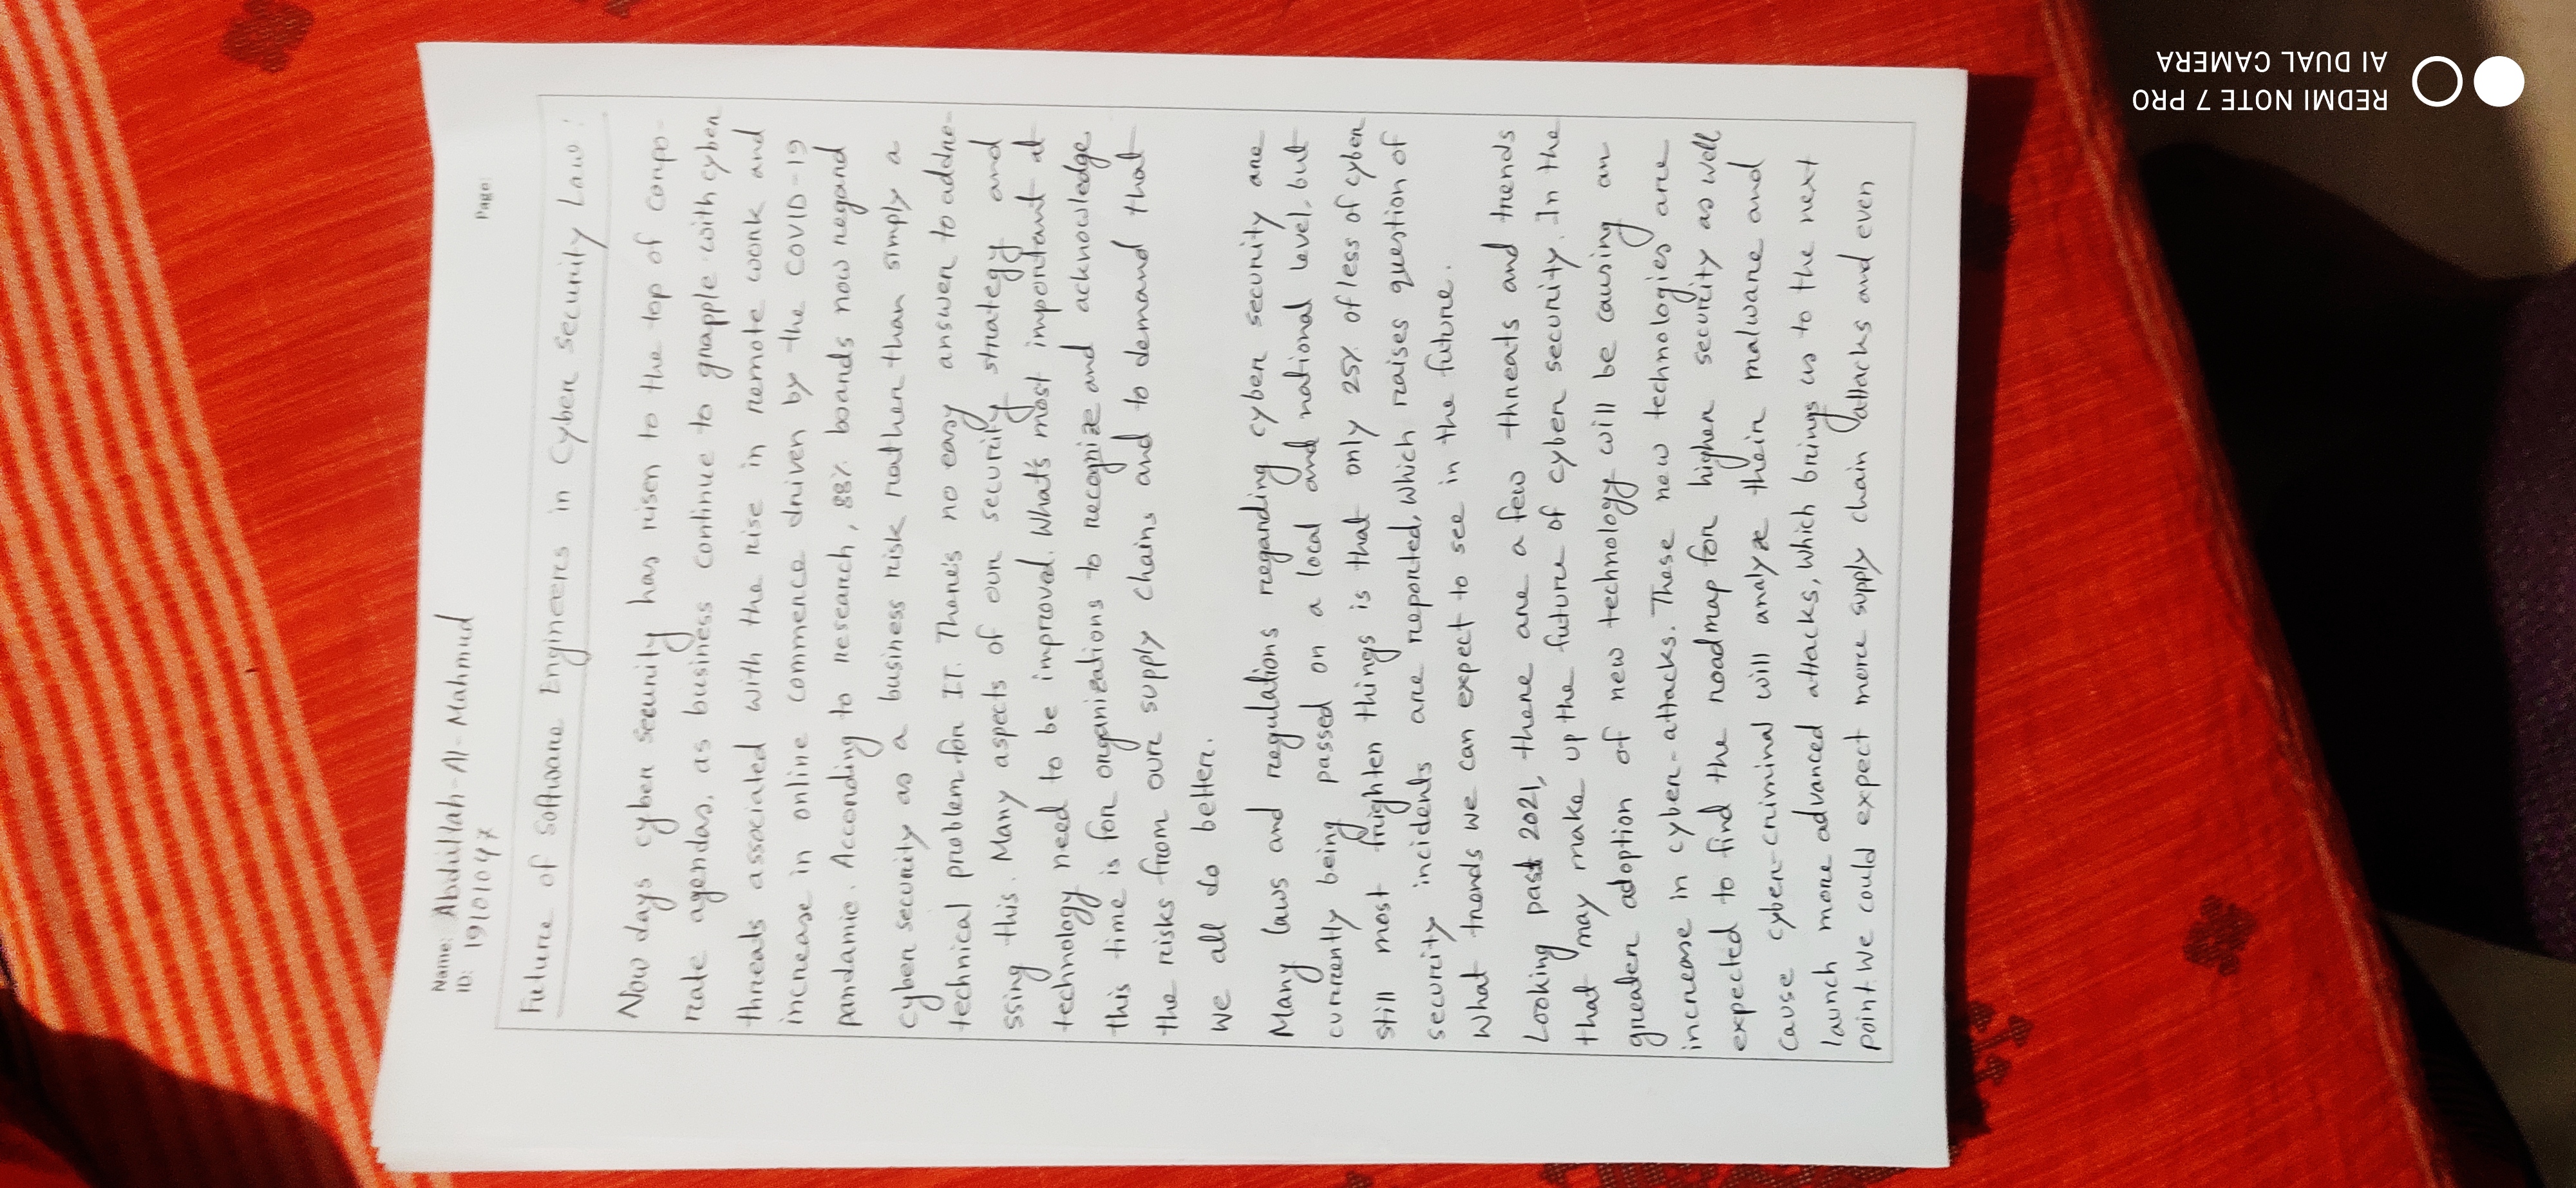 Name: Abdullah-Al-Mahmud
ID: 19101047
Page:
Future of Software Engineers in Cyber Security Law:
Now days cyber security has risen to the top of corpo-
rate agendas, as business continue to grapple with cyber
threats associated with the rise in remote work and
increase in online commerce driven by the COVID-19
pandamic. According to research, 88% boards now regard
cyber security as a business risk rather than simply a
technical problem for IT. There's no easy answer to addre-
ssing this. Many aspects of our security strategy and
technology need to be improved. What's most important at
this time is for organizations to recognize and acknowledge
the risks from our supply chains and to demand that
we all do better.
Many laws and regulations regarding cyber security are
currently being passed on a local and national level, but
still most frighten things is that only 25% of less of cyber
security incidents are reported, which raises question of
what trends we can expect to see in the future.
Looking past 2021, there are a few threats and trends
that may make up the future of cyber security. In the
greater adoption of new technology will be causing an
increase in cyber-attacks. These new technologies are
expected to find the roadmap for higher security as well
cause cyber-criminal will analyze their malware and
launch more advanced attacks, which brings us to the next
point. We could expect more supply chain attacks and even
REDMI NOTE 7 PRO
AI DUAL CAMERA